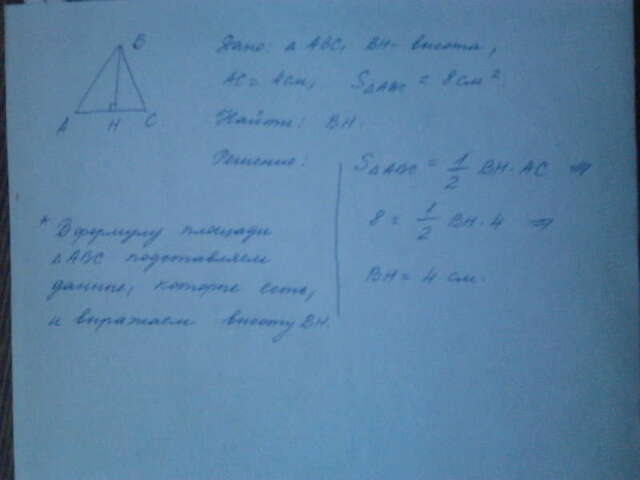 B
A H C
Дано: △ ABC, BH - высота,
AC = 4см, S△ABC = 8 см²
Найти: BH.
Решение:
S△ABC = 1/2 BH · AC ⇒
8 = 1/2 BH · 4 ⇒
BH = 4 см.
* В формулу площади
△ABC подставляем
данные, которые есть,
и выражаем высоту BH.